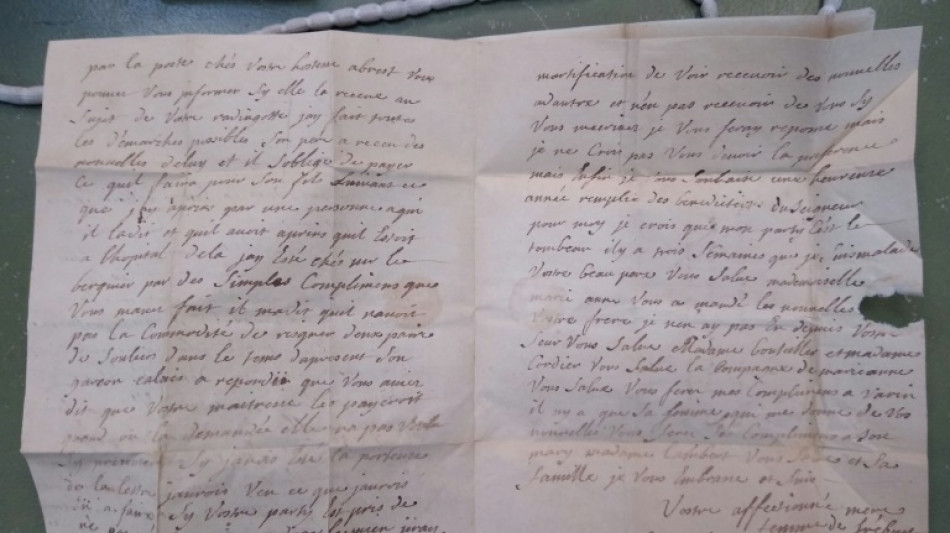 par la poste chés Votre hostesse abrest vous
pouvez Vous jnformer Sy elle la receue au
Sujet de Votre radingotte jay fait toutes
les démarches posibles Son pere a receu des
nouvelles deluy et il Soblige de payer
Ce quil faira pour Son fils
que apris par une personne aqui
il ladit et quil avoit apris quil Estoit
a lhopital dela jay Esté chés mr le
berquier par des Simples Complimens que
Vous mavez fait il madit quil navoit
pas la Commodité de risquer deux paire
de Souliers dans le tems dapresent Son
garson calais a repondu que Vous aviez
dit que Votre maitresse les payeroit
quand on la demandée elle na pas Voulu
Sy javois Esté la porteuse
de la lettre jaurois Veu ce que jaurois
Sy Votre party les pris de
mortification de Voir recevoir des nouvelles
dautre et nen pas recevoir de Vous Sy
Vous mecrivez je Vous feray reponse mais
je ne Crois pas Vous devoir la preference
mais Enfin je Vous Souhaite une heureuse
année remplie des benedictions du Seigneur
pour moy je crois que mon party Est le
tombeau il y a trois Semaines que je suis malade
Votre beau pere Vous Salue mademoiselle
marie anne Vous a mandé les nouvelles
Votre frere je nen ay pas Eu depuis Votre
Seur Vous Salue Madame bouteiller et madame
Cordier Vous Salue la Compagne de marianne
Vous Salue Vous ferez mes Complimens a Varin
il ny a que Sa femme qui me donne de vos
nouvelles Vous ferez Ses Complimens a Son
mary madame Lambert Vous Salue et Sa
famille je Vous Embrasse et Suis
Votre affectionné mere
femme de